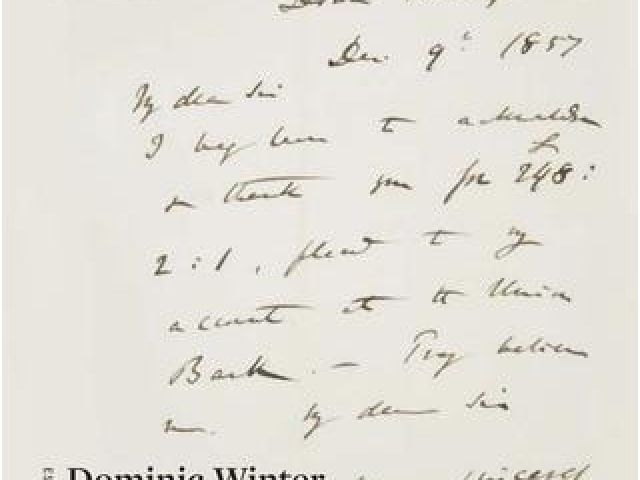 Down
Dec. 9th 1857
My dear Sir
I beg leave to acknowledge
& thank you for £248:
2:1, placed to my
account at the Union
Bank. — Pray believe
me. My dear Sir
sincerely
Dominic Winter